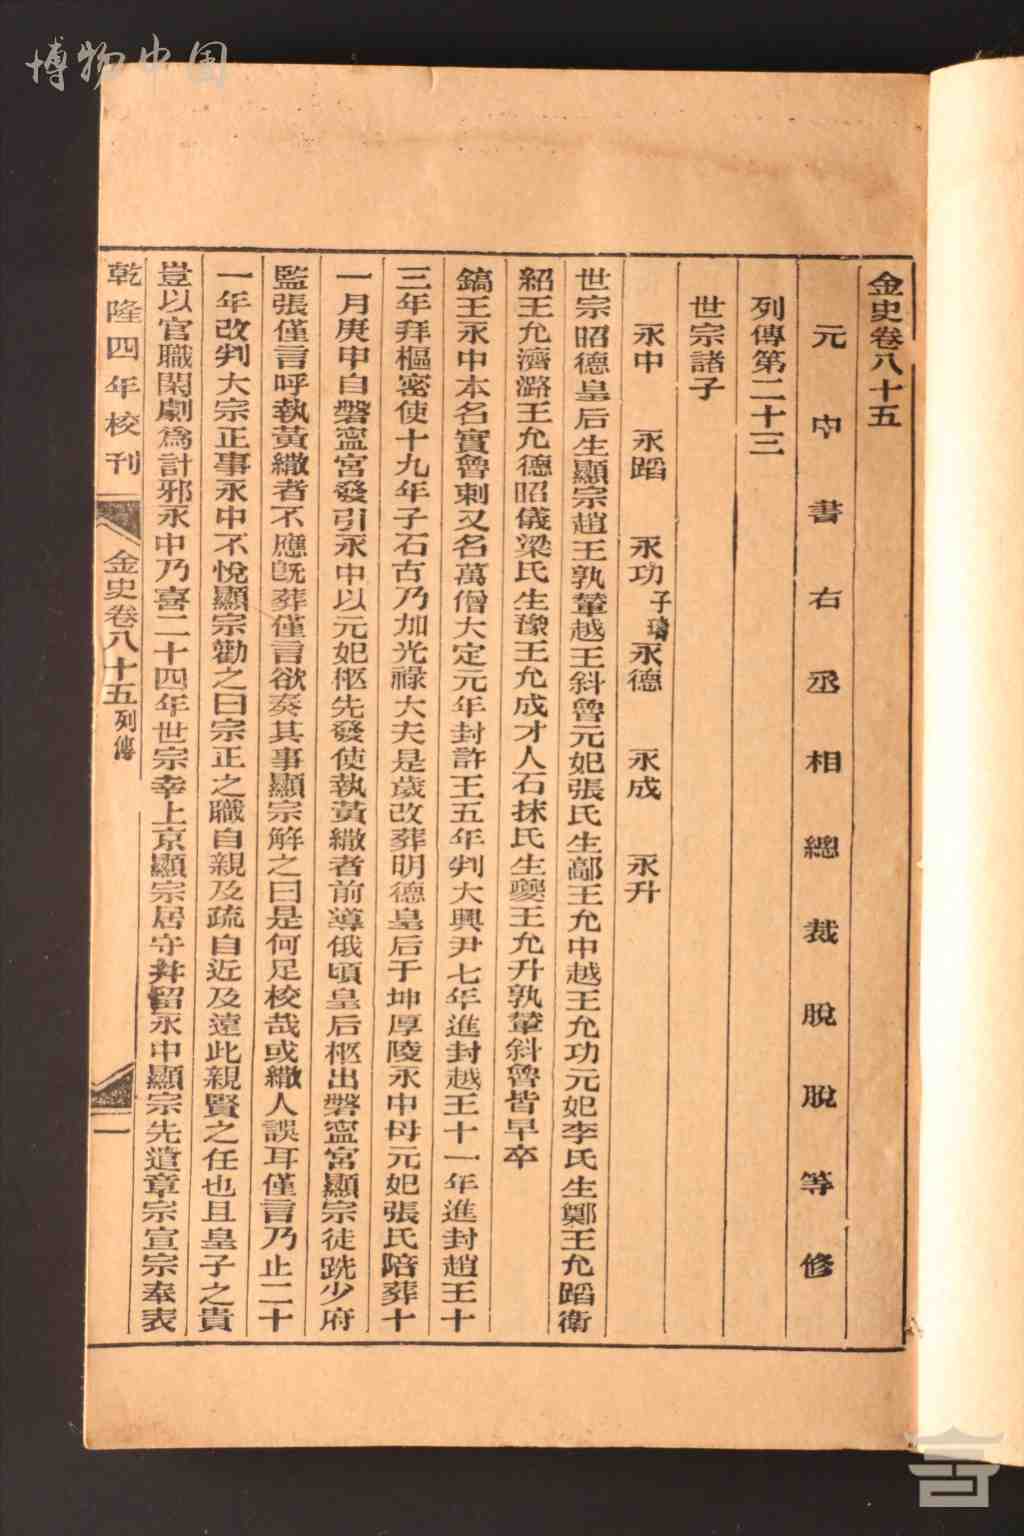 博物中国
金史卷八十五
元中書右丞相總裁脫脫等修
列傳第二十三
世宗諸子
永中 永蹈 永功子璹 永德 永成 永升
世宗昭德皇后生顯宗趙王孰輦越王斜魯元妃張氏生鄗王允中越王允功元妃李氏生鄭王允蹈衛
紹王允濟潞王允德昭儀梁氏生豫王允成才人石抹氏生夔王允升孰輦斜魯皆早卒
鎬王永中本名實魯剌又名萬僧大定元年封許王五年判大興尹七年進封越王十一年進封趙王十
三年拜樞密使十九年子石古乃加光祿大夫是歲改葬明德皇后于坤厚陵永中母元妃張氏陪葬十
一月庚申自磐寧宮發引永中以元妃柩先發使執黃繖者前導俄頃皇后柩出磐寧宮顯宗徒跣少府
監張僅言呼執黃繖者不應旣葬僅言欲奏其事顯宗解之曰是何足校哉或繖人誤耳僅言乃止二十
一年改判大宗正事永中不悅顯宗勸之曰宗正之職自親及疏自近及遠此親賢之任也且皇子之貴
豈以官職閑劇爲計邪永中乃喜二十四年世宗幸上京顯宗居守幷留永中顯宗先遣章宗宣宗奉表
乾隆四年校刊
金史卷八十五列傳
一